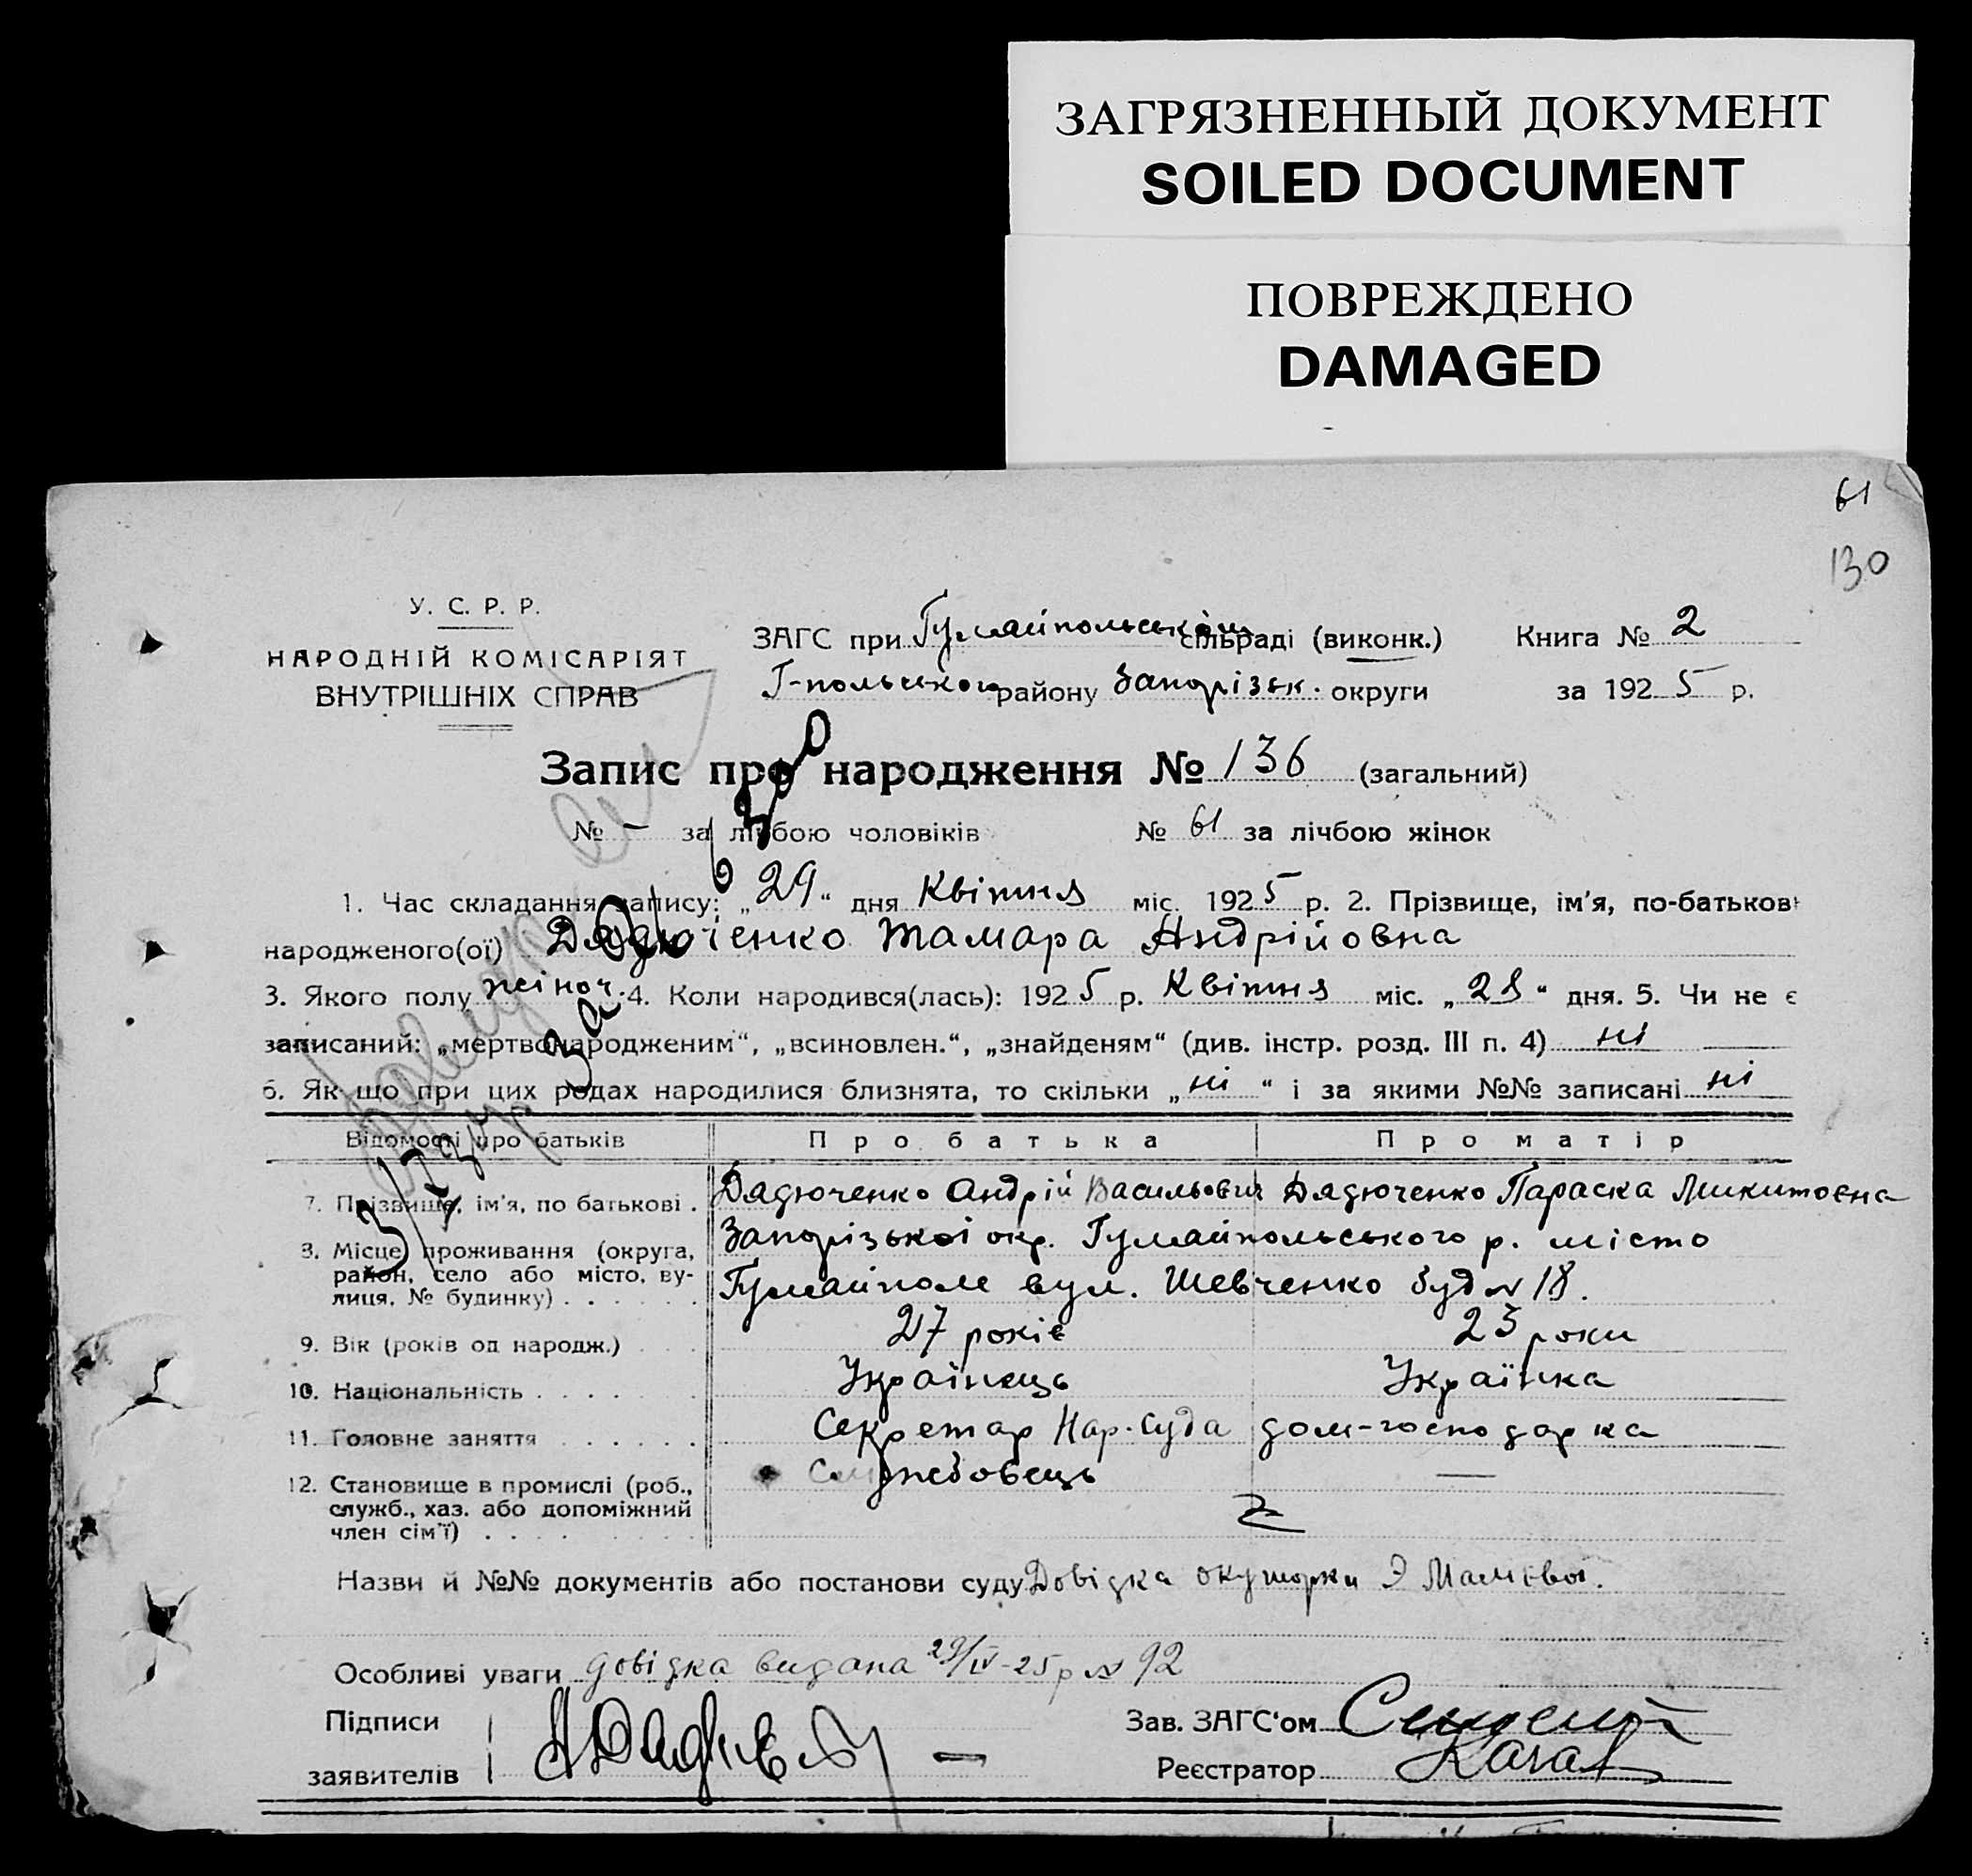 ЗАГРЯЗНЕННЫЙ ДОКУМЕНТ
SOILED DOCUMENT
ПОВРЕЖДЕНО
DAMAGED
61
130
У. С. Р. Р.
НАРОДНІЙ КОМІСАРІЯТ
ВНУТРІШНІХ СПРАВ
ЗАГС при Гуляйпольськом сільраді (виконк.) Книга № 2
Г-польського району Запорізьк. округи за 1925 р.
Запис про народження № 136 (загальний)
№ – за лічбою чоловіків № 61 за лічбою жінок
1. Час складання запису: „29“ дня Квітня міс. 1925 р. 2. Прізвище, ім'я, по-батькові
народженого(ої) Дядюченко Тамара Андрійовна
3. Якого полу жіноч. 4. Коли народився(лась): 1925 р. Квітня міс. „28“ дня. 5. Чи не є
записаний: „мертвонародженим“, „всиновлен.“, „знайденям“ (див. інстр. розд. III п. 4) ні
6. Як що при цих родах народилися близнята, то скільки „ні“ і за якими №№ записані ні
Відомості про батьків Про батька Про матір
7. Прізвище, ім'я, по батькові . Дядюченко Андрій Васильович Дядюченко Параска Микитовна
8. Місце проживання (округа, район, село або місто, вулиця, № будинку) . . . . . . Запорізької окр. Гуляйпольського р. місто
Гуляйполе вул. Шевченко буд № 18.
9. Вік (років од народж.) . . . 27 років 23 роки
10. Національність . . . . . . Українець Українка
11. Головне заняття . . . . . . Секретар Нар. Суда дом-господарка
12. Становище в промислі (роб., служб., хаз. або допоміжний член сім'ї) . . . . Службовець —
Назви й №№ документів або постанови суду Довідка окушорки
Особливі уваги довідка видана 29/IV-25р № 92
Підписи
заявителів
Зав. ЗАГС'ом
Реєстратор